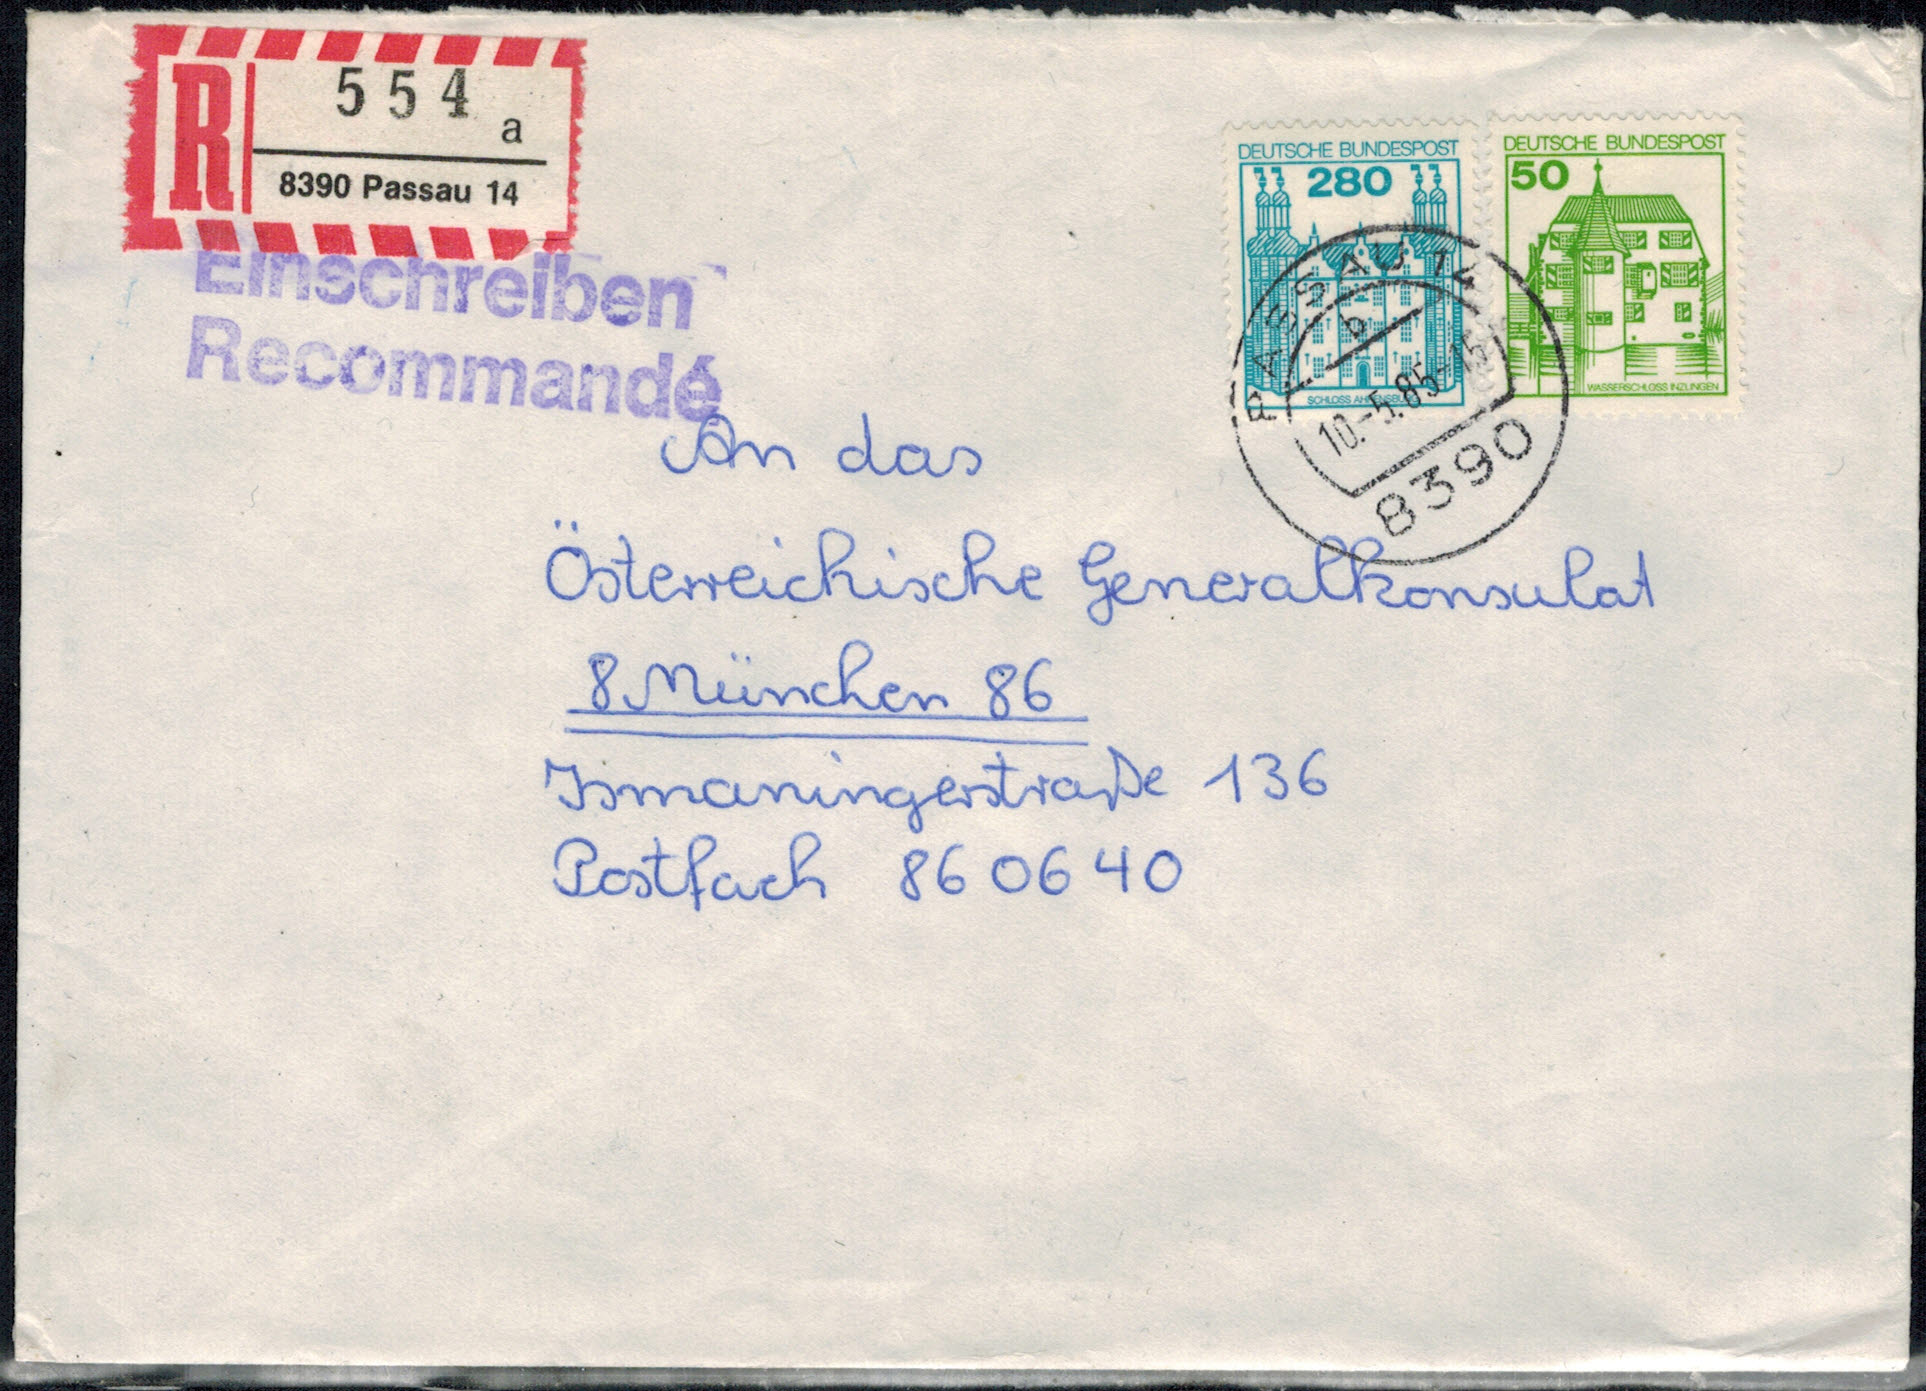 R
554
a
8390 Passau 14
Einschreiben
Recommandé
DEUTSCHE BUNDESPOST
280
DEUTSCHE BUNDESPOST
50
WASSERSCHLOSS INZLINGEN
SCHLOSS
PASSAU 14
b
10.-5.85-15
8390
An das
Österreichische Generalkonsulat
8 München 86
Ismaningerstraße 136
Postfach 860640